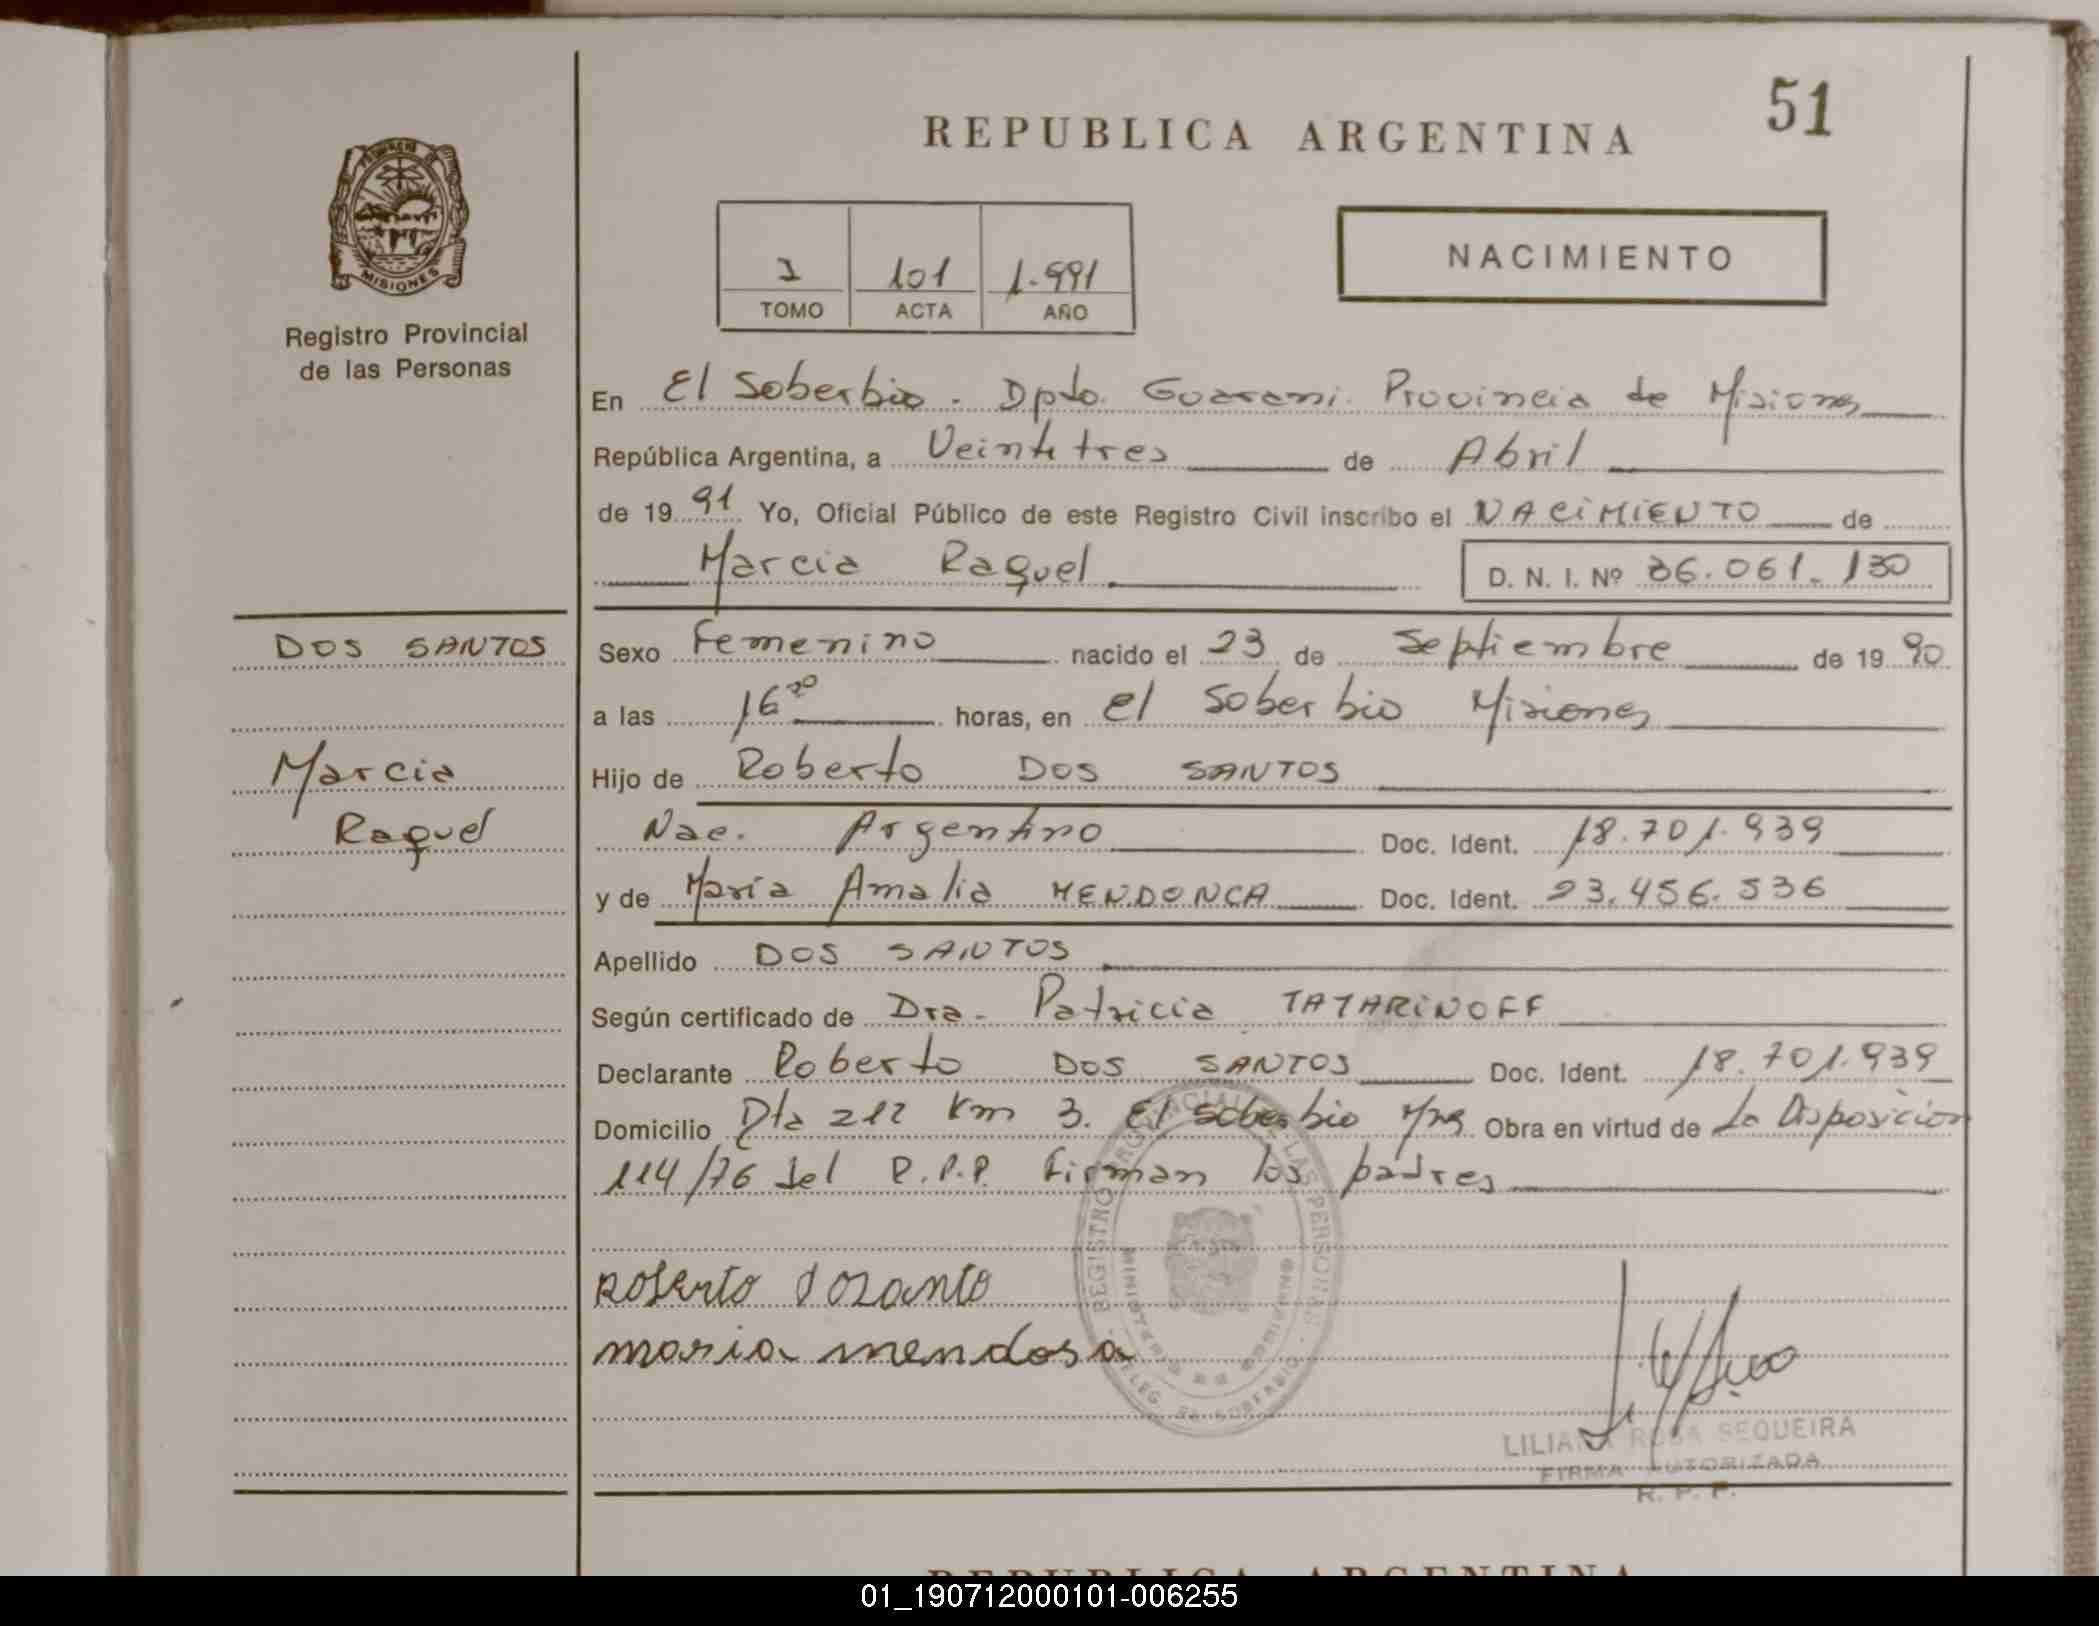 51
REPUBLICA ARGENTINA
PROVINCIA DE
MISIONES
Registro Provincial
de las Personas
1 101 1.991
TOMO ACTA AÑO
NACIMIENTO
En El Soberbio. Dpto. Guarani. Provincia de Misiones
República Argentina, a Veintetres de Abril
de 1991 Yo, Oficial Público de este Registro Civil inscribo el NACIMIENTO de
Marcia Raquel D. N. I. Nº 36.061.130
DOS SANTOS
Marcia
Raquel
Sexo Femenino nacido el 23 de Septiembre de 1990
a las 16 horas, en El Soberbio Misiones
Hijo de Roberto DOS SANTOS
Nac. Argentino Doc. Ident. 18.701.939
y de María Amalia MENDONCA Doc. Ident. 23.456.536
Apellido DOS SANTOS
Según certificado de Dra. Patricia TATARINOFF
Declarante Roberto DOS SANTOS Doc. Ident. 18.701.939
Domicilio Rta 212 Km 3. El Soberbio Mns Obra en virtud de La Disposicion
114/76 del R.P.P. Firman los padres
Roberto dosanto
maria mendosa
REGISTRO PROVINCIAL DE LAS PERSONAS
MINISTERIO DE GOBIERNO
DELEG. EL SOBERBIO
LILIANA ROSA SEQUEIRA
FIRMA AUTORIZADA
R. P. P.
REPUBLICA ARGENTINA
01_190712000101-006255